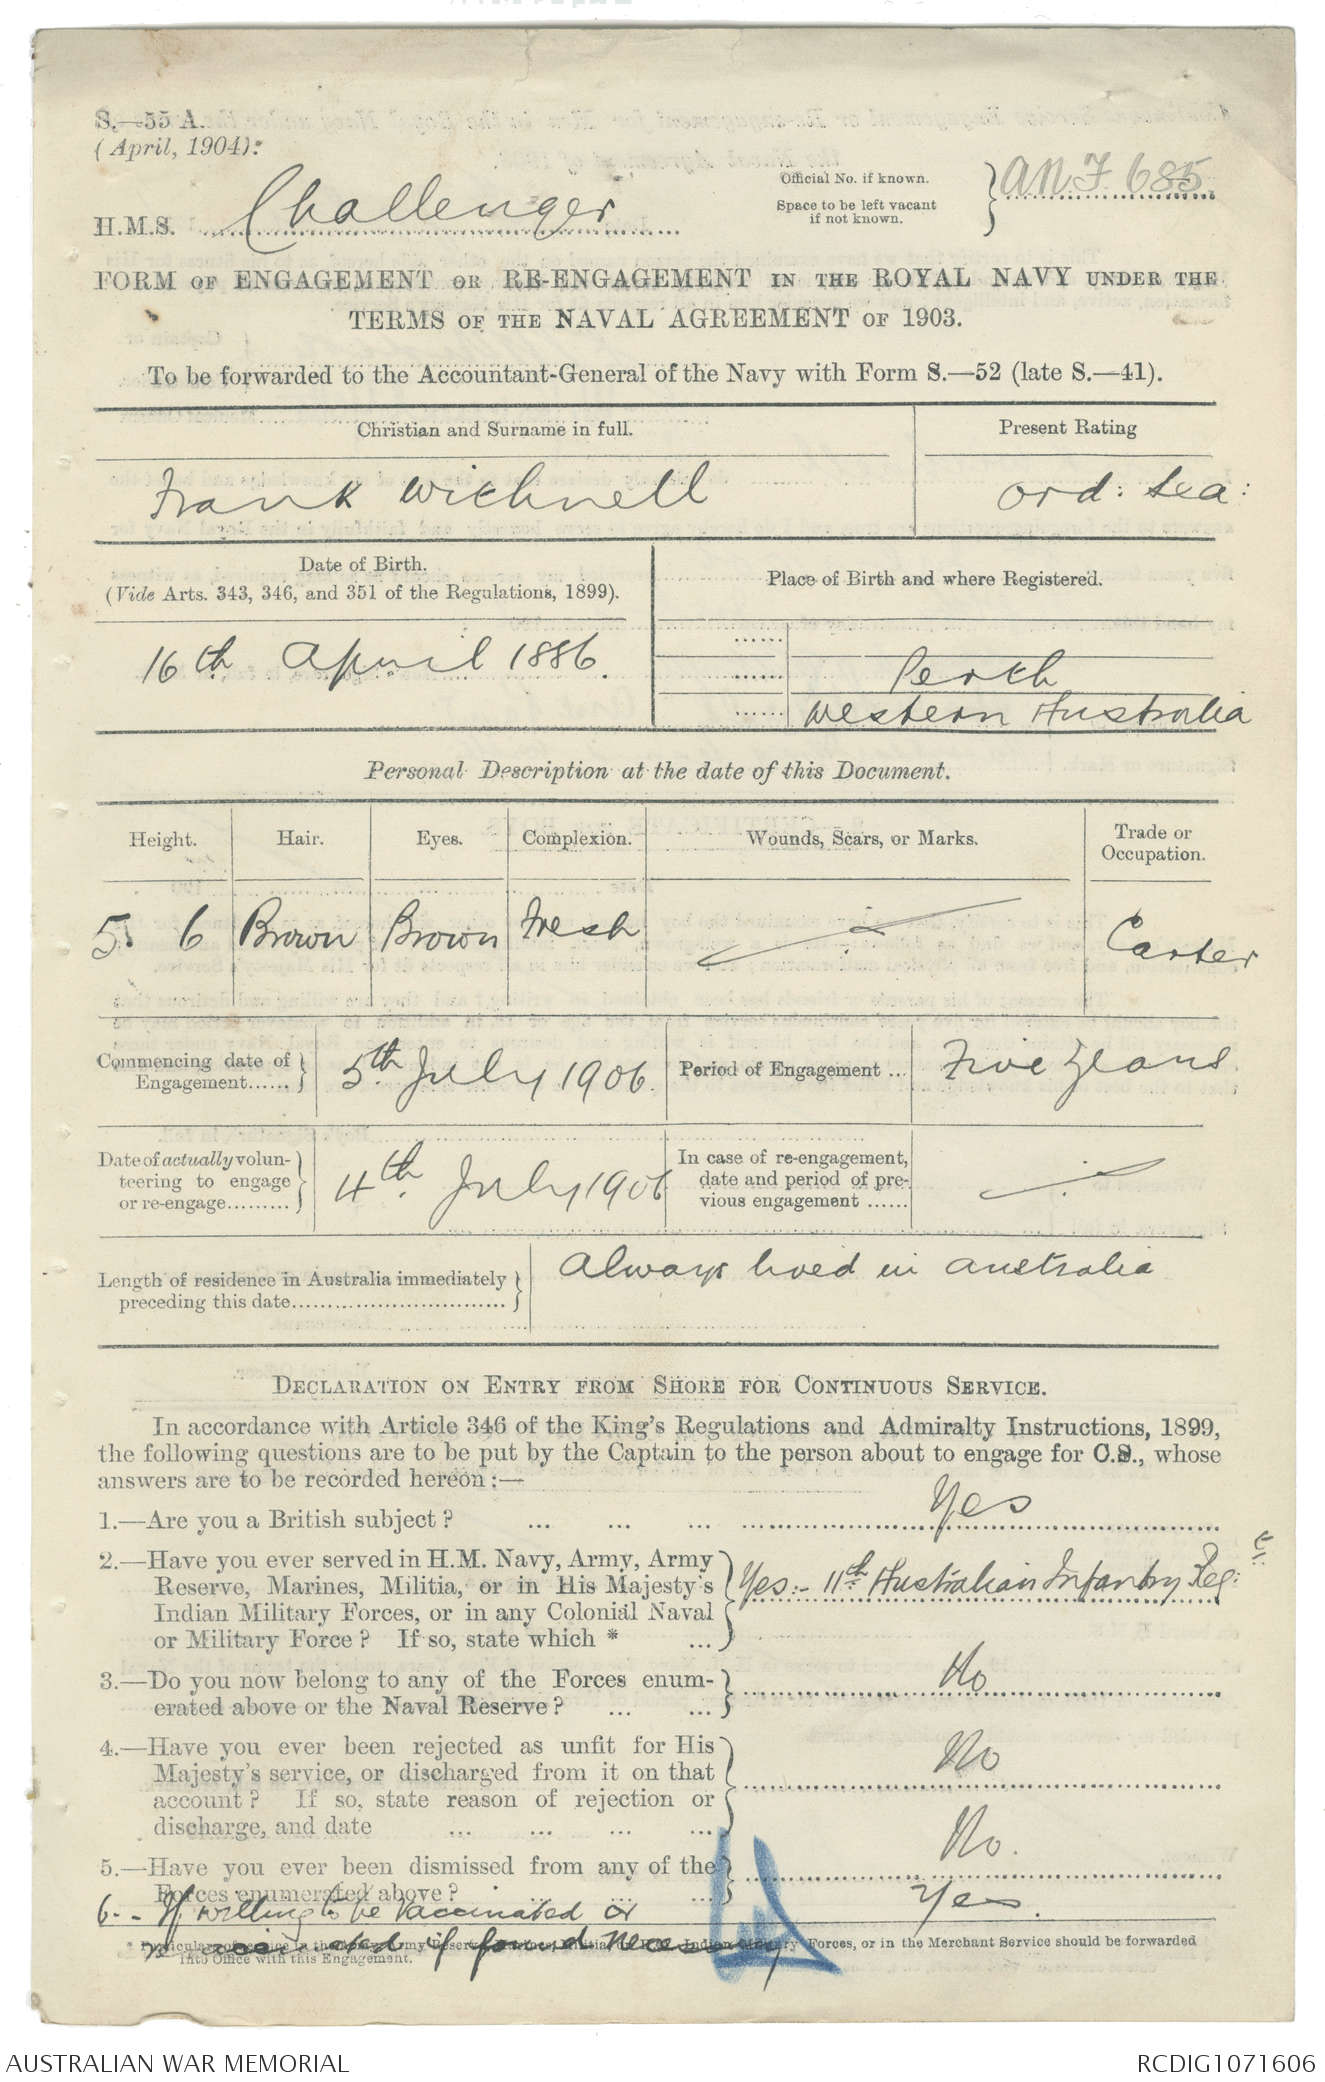 S.—55 A.
(April, 1904):
H.M.S. Challenger
Official No. if known.
Space to be left vacant
if not known.
ANF 685
FORM OF ENGAGEMENT OR RE-ENGAGEMENT IN THE ROYAL NAVY UNDER THE
TERMS OF THE NAVAL AGREEMENT OF 1903.
To be forwarded to the Accountant-General of the Navy with Form S.—52 (late S.—41).
Christian and Surname in full.
Present Rating
Frank Withnell
Ord: Sea:
Date of Birth.
(Vide Arts. 343, 346, and 351 of the Regulations, 1899).
Place of Birth and where Registered.
16th April 1886.
Perth
Western Australia
Personal Description at the date of this Document.
Height.
Hair.
Eyes.
Complexion.
Wounds, Scars, or Marks.
Trade or
Occupation.
5. 6
Brown
Brown
Fresh
Carter
Commencing date of
Engagement......
5th July 1906.
Period of Engagement ...
Five Years
Date of actually volun-
teering to engage
or re-engage.........
4th July 1906
In case of re-engagement,
date and period of pre-
vious engagement ......
Length of residence in Australia immediately
preceding this date..............................
Always lived in Australia
DECLARATION ON ENTRY FROM SHORE FOR CONTINUOUS SERVICE.
In accordance with Article 346 of the King's Regulations and Admiralty Instructions, 1899,
the following questions are to be put by the Captain to the person about to engage for C.S., whose
answers are to be recorded hereon:—
1.—Are you a British subject? ... ... ... Yes
2.—Have you ever served in H.M. Navy, Army, Army
Reserve, Marines, Militia, or in His Majesty's
Indian Military Forces, or in any Colonial Naval
or Military Force? If so, state which * ...
Yes:- 11th Australian Infantry Reg:t
3.—Do you now belong to any of the Forces enum-
erated above or the Naval Reserve? ... ...
No
4.—Have you ever been rejected as unfit for His
Majesty's service, or discharged from it on that
account? If so, state reason of rejection or
discharge, and date ... ... ... ...
No
5.—Have you ever been dismissed from any of the
Forces enumerated above? ... ... ...
No.
6.- If willing to be vaccinated or
re vaccinated if found necessary
Yes.
Forces, or in the Merchant Service should be forwarded
into Office with this Engagement.
AUSTRALIAN WAR MEMORIAL
RCDIG1071606